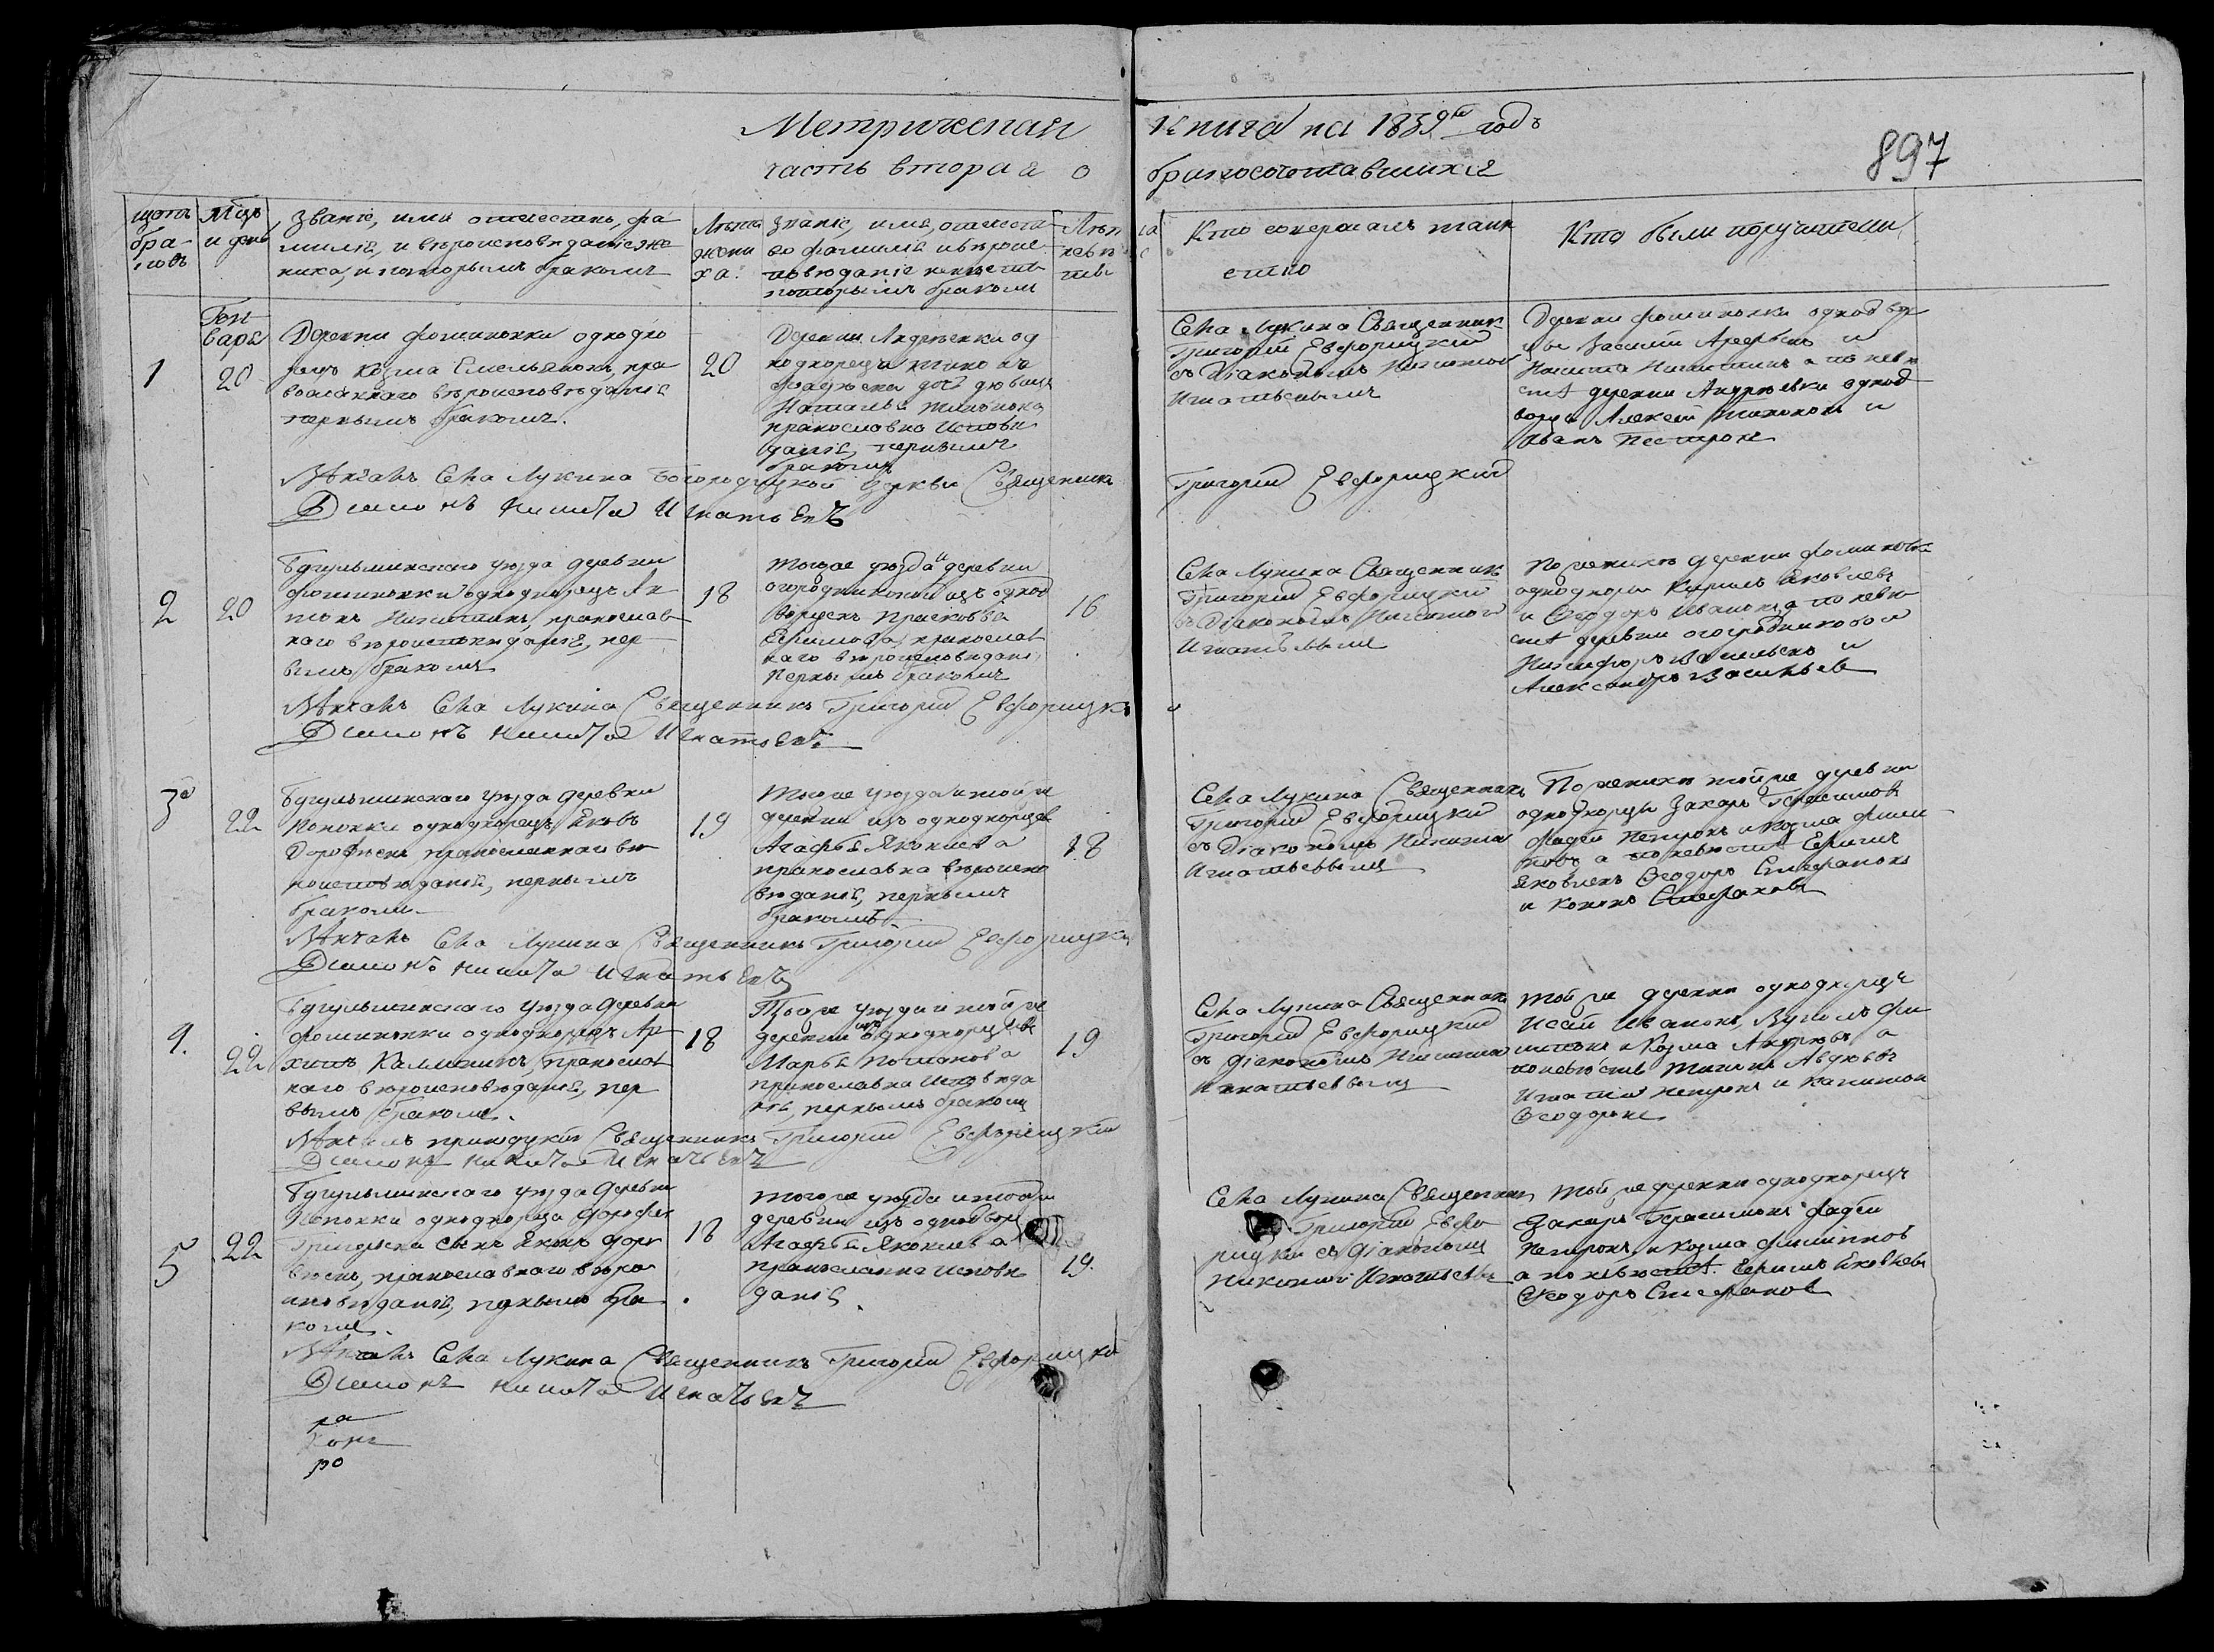 Метрическая книга на 1839й годъ
897
часть вторая о бракосочетавшихся
щотъ браковъ
Мцъ и день
Званіе, имя отечество, фамилія, и вѣроисповѣданіе жениха, и которымъ бракомъ
Лѣта жениха.
званіе, имя, отечество фамилія и вѣроисповѣданіе невѣсты которымъ бракомъ
Лѣта невѣсты
Кто совершалъ таинство
Кто были поручители
1
Генваря
20
Деревни Фоминовки однодво
рецъ Козма Емельяновъ, пра
вославнаго вѣроисповѣданія
первымъ бракомъ.
20
Деревни Андрѣевки од
нодворца
дочь дѣвица
Наталья
православна исповѣ
данія, первымъ
бракомъ
Села Лукина Священникъ
Григорій Евфорицкій
съ Діакономъ Никитою
Игнатьевымъ
Деревни Фоминовки однодвор
цы Василій и
Никита Никитинъ а по невѣ
стѣ деревни Андрѣевки однод
ворцы Алексей и
Иванъ Петровъ
Вѣнчалъ Села Лукина Богородицкой церкви Священникъ Григорій Евфорицкій
Діаконъ Никита Игнатьевъ
2
20
Бугульминскаго уѣзда деревни
Фоминовки однодворецъ Ан
тонъ Никитинъ, православ
наго вѣроисповѣданія, пер
вымъ бракомъ
18
тогоже уѣзда и деревни
огородниковой изъ однод
ворцевъ Прасковья
Ефимова, православ
наго вѣроисповѣдані
первымъ бракомъ
16
Села Лукина Священникъ
Григорій Евфорицкій
съ Діакономъ Никитою
Игнатьевымъ
По женихѣ деревни Фоминовки
однодворцы Кирилъ Яковлевъ
и Ѳеодоръ Ивановъ, а по невѣ
стѣ деревни огородниковой
Никифоръ Васильевъ и
Александръ Васильевъ
Вѣнчалъ Села Лукина Священникъ Григорій Евфорицкій
Діаконъ Никита Игнатьевъ
3
22
Бугульминскаго уѣзда деревни
Поповки однодворецъ Яковъ
Дорофѣевъ православнаго вѣ
роисповѣданія, первымъ
бракомъ
19
тогоже уѣзда и тойже
деревни изъ однодворцевъ
Агафья Яковлева
православна вѣроиспо
вѣданія, первымъ
бракомъ
18
Села Лукина Священникъ
Григорій Евфорицкій
съ Діакономъ Никитою
Игнатьевымъ
По женихѣ тойже деревни
однодворцы Захаръ Герасимовъ
Фадей Петровъ и Козма Филип
повъ а по невѣстѣ Ефимъ
Яковлевъ Ѳеодоръ Стефановъ
и Кононъ Стефановъ
Вѣнчалъ Села Лукина Священникъ Григорій Евфорицкій
Діаконъ Никита Игнатьевъ
4.
22
Бугульминскаго уѣзда деревни
Фоминовки однодворецъ Ар
хипъ Калининъ, православ
наго вѣроисповѣданія, пер
вымъ бракомъ.
18
Тогоже уѣзда и тойже
деревни изъ однодворцевъ
Марья Потапова
православна исповѣда
нія, первымъ бракомъ
19
Села Лукина Священникъ
Григорій Евфорицкій
съ діакономъ Никитою
Игнатьевымъ
Тойже деревни однодворцы
Исай Ивановъ,
и Козма Андрѣевъ а
по невѣстѣ Авдѣевъ
Игнатій Петровъ и Капитон
Ѳеодоровъ
Вѣнчалъ приходскій Священникъ Григорій Евфорицкій
Діаконъ Никита Игнатьевъ
5
22
Бугульминскаго уѣзда деревни
Поповки однодворца Дорофея
Григорьева сынъ Яковъ Доро
ѳеевъ, православнаго вѣро
исповѣданія, первымъ бра
комъ.
18
тогоже уѣзда и тойже
деревни изъ однодвор
Агафья Яковлева
православна исповѣ
данія
19.
Села Лукина Священникъ
Григорій Евфо
рицкій съ діакономъ
Никитою Игнатьевъ
Тойже деревни однодворцы
Захаръ Герасимовъ Фадей
Петровъ, и Козма Филиповъ
а по невѣстѣ. Ефимъ Яковлевъ
Ѳеодоръ Стефановъ
Вѣнчалъ Села Лукина Священникъ Григорій Евфорицкій
Діаконъ Никита Игнатьевъ
ро